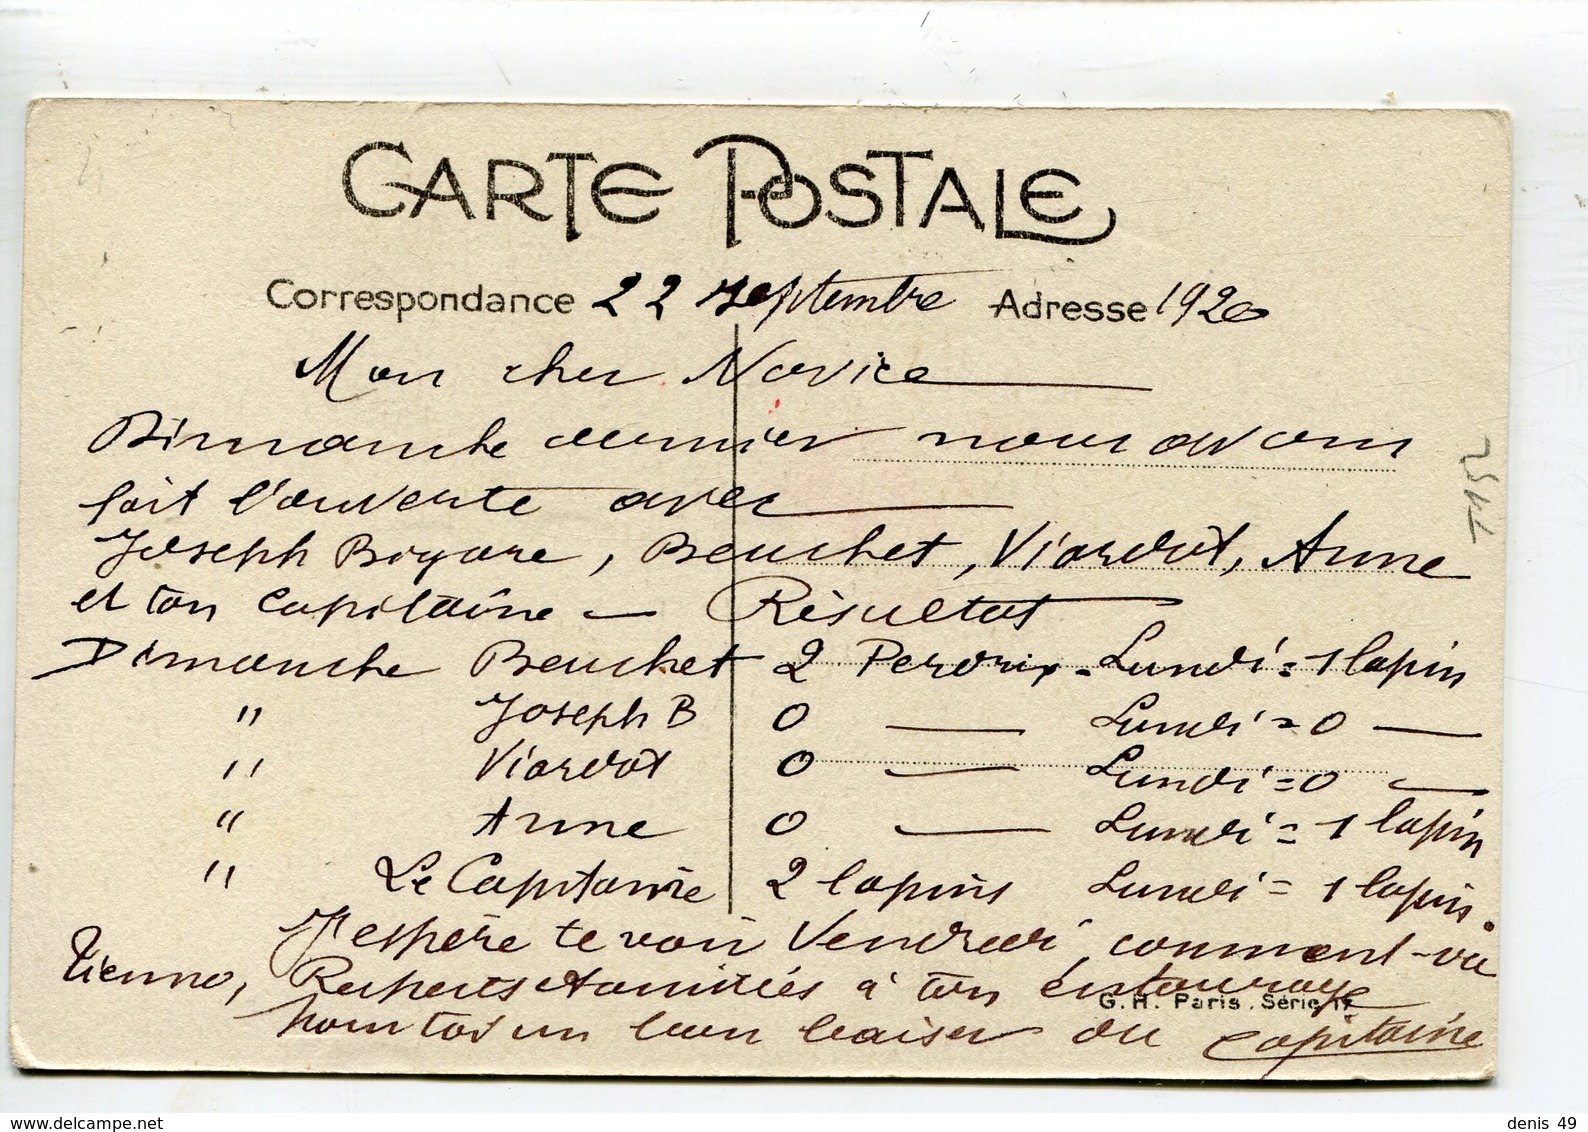 CARTE POSTALE
Correspondance 22 septembre Adresse 1920
Mon cher Novice
Dimanche dernier nous avons
fait l'ouverte avec
Joseph Bigare, Beuchet, Viardot, Anne
et ton capitaine — Résultat
Dimanche Beuchet 2 Perdrix - Lundi = 1 lapin
" Joseph B 0 — Lundi = 0 —
" Viardot 0 — Lundi = 0 —
" Anne 0 — Lundi = 1 lapin
" Le Capitaine 2 lapins Lundi = 1 lapin.
J'espère te voir Vendredi, comment-va
Respects Amitiés à ton entourage
G. H. Paris. Série 17
pour toi un bon baiser du capitaine
T152
www.delcampe.net
denis 49